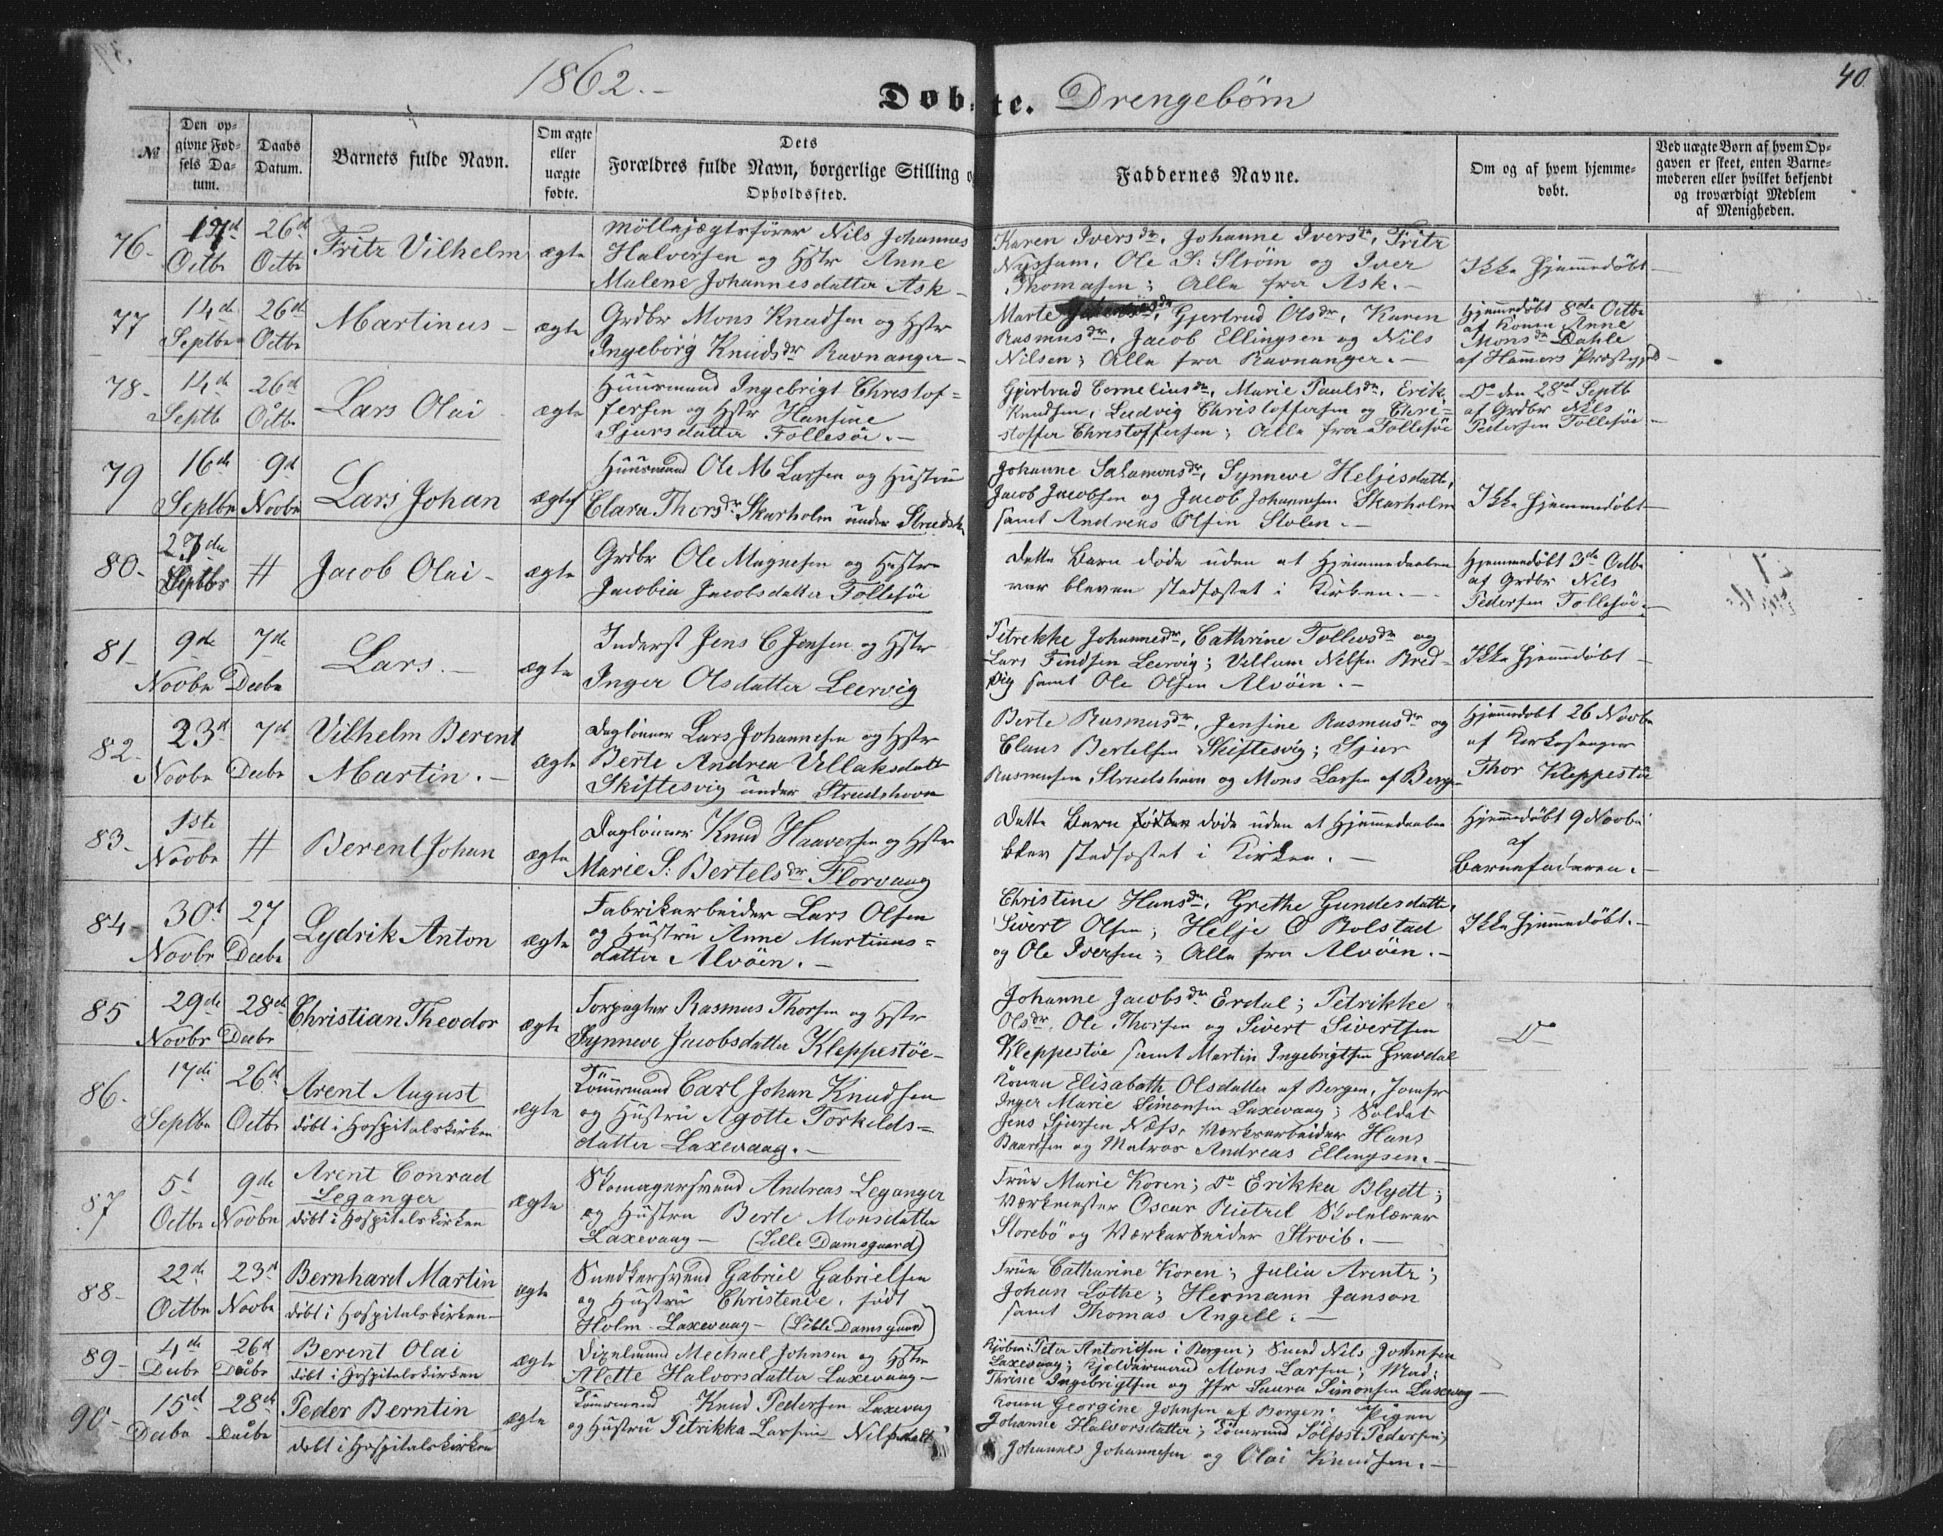 1862.-
40
Døbte. Drengebørn
№
Den opgivne Fødsels Datum.
Daabs Datum.
Barnets fulde Navn.
Om ægte eller uægte fødte.
Dets
Forældres fulde Navn, borgerlige Stilling o
Opholdssted.
Faddernes Navne.
Om og af hvem hjemmedøbt.
Ved uægte Børn af hvem Opgaven er skeet, enten Barnemoderen eller hvilket bekjendt og troværdigt Medlem af Menigheden.
76-
17d Octbr
26d Octbr
Fritz Vilhelm
ægte
Møllejægtsfører Nils Johannes
Halversen og Hstr Anne
Malene Johannesdatter Ask-
Karen Iversdr, Johanne Iversdr, Fritz
Nyssum, Ole S: Strøm og Iver
Thomasen; Alle fra Ask.-
Ikke hjemmedøbt-
77
14de Septbr
26d Octbr
Martinus-
ægte
Grdbr Mons Knudsen og Hstr
Ingebørg Knudsdr Ravnanger-
Marte Gjertrud Olsdr, Karen
Rasmusdr, Jacob Ellingsen og Nils
Nilsen; Alle fra Ravnanger.-
Hjemmedøbt 8de Octbr
af Konen Anne
Monsdr Dahle
af Hammers Præstegjeld-
78-
14de Septb
26d Octbr
Lars Olai
ægte
Huusmand Ingebrigt Christof=
fersen og Hstr Hansine
Sjursdatter Follesøe.-
Gjertrud Corneliusdr, Marie Paulsdr, Erik
Knudsen, Ludvig Christoffersen og Chri=
stoffer Christoffersen; Alle fra Follesøe
Do den 28de Septb
af Grdbr Nils
Pedersen Follesøe-
79
16de Septbr
9d Novbr
Lars Johan
ægte
Huusmand Ole M Larsen og Hustru
Clara Thorsdr Skarholm under
Johanne Salamonsdr, Synneve Heljesdatt,
Jacob Jacobsen og Jacob Johannesen Skarholm
samt Andreas Olsen Stolen.-
Ikke hjemmedøbt-
80-
27de Septbr
#
Jacob Olai-
ægte
Grdbr Ole Magnesen og Hustru
Jacobia Jacobsdatter Follesøe
Dette Barn døde uden at Hjemmedaaben
var bleven stadfæstet i Kirken.-
Hjemmedøbt 3de Octbr
af Grdbr Nils
Pedersen Follesøe.-
81-
9de Novbr
7de Decbr
Lars.-
ægte
Inderst Jens C Jensen og Hstr
Inger Olsdatter Leervig
Petrekke Johannesdr, Cathrine Tollevsdr og
Lars Findsen Leervig; Villum Nilsen Bred-
vig samt Ole Olsen Alvøen.-
Ikke hjemmedøbt-
82-
23d Novbr
7de Decbr
Vilhelm Berent
Martin.-
ægte
Daglønner Lars Johannesen og Hstr
Berte Andrea Villaksdatt
Skiftesvig under Strudshavn
Berte Rasmusdr, Jensine Rasmusdr og
Claus Bertelsen Skiftesvig; Sjur
Rasmusen Strudshavn og Mons Larsen af Bergn
Hjemmedøbt 26 Novbr
af Kirkesanger
Thor Kleppestøe
83-
1ste Novbr
#
Berent Johan
ægte
Daglønner Knud Haaversen og Hstr
Marie S: Bertelsdr Florvaag
Dette Barn døde uden at Hjemmedaaben
blev stadfæstet i Kirken.-
Hjemmedøbt 9 Novbr
af
Barnefaderen.-
84-
30d Novbr
27 Decbr
Lydrik Anton
ægte
Fabrikarbeider Lars Olsen
og Hustru Anne Martinus=
datter Alvøen.-
Christine Hansdr, Grethe Gundesdatter,
Sivert Olsen; Helje O Bolstad
og Ole Iversen; Alle fra Alvøen.-
Ikke hjemmedøbt.-
85
29de Novbr
28de Decbr
Christian Theodor
ægte
Forpagter Rasmus Thorsen og Hstr
Synneve Jacobsdatter Kleppestøe-
Johanne Jacobsdr Erdal; Petrikke
Olsdr, Ole Thorsen og Sivert Sivertsen
Kleppestøe samt Martin Ingebrigtsen Gravdal
Do
86-
17de Septbr
26d Octbr
Arent August
døbt i Hospitalskirken
ægte
Tømrmand Carl Johan Knudsen
og Hustru Agotte Torkilds=
datter Laxevaag.-
Konen Elisabeth Olsdatter af Bergen, Jomfr
Inger Marie Simonsen Laxevaag; Soldat
Jens Sjursen Næss, Værksarbeider Hans
Baardsen og Matros Andreas Ellingsen.-
87
5d Octbr
9de Novbr
Arent Conrad
Leganger
døbt i Hospitalskirken
ægte
Skomagersvend Andreas Leganger
og Hustru Berte Monsdatter
Laxevaag- (Lille Damsgaard)
Frue Marie Koren; Do Erikka Blydt;
Værkmester Oscar Pietzel Skolelærer
Storebø og Værkarbeider Stroib.-
88-
22de Octbr
23d Novbr
Bernhard Martin
døbt i Hospitalskirken-
ægte
Snedkersvend Gabriel Gabrielsen
og Hustru Christence, født
Holm- Laxevaag- (Lille Damsgaard)
Frue Catharine Koren; Julia Arentz;
Johan Lothe; Hermann Janson
samt Thomas Angell.-
89-
4de Decbr
26d Decbr
Berent Olai
døbt i Hospitalskirken
ægte
Sigelmand Mechael Johnsen og Hstr
Alette Halvorsdatter Laxevaag-
Kjøbm: Peter Antonissen i Bergen; Svend Nils Johnsen
Laxevaag; Mons Larsen; Mad:
Thrine Ingebrigtsen og Jfr Laura Simonsen Laxevaag-
90-
15d Decbr
28de Decbr
Peder Berntin
døbt i Hospitalskirken
ægte
Tømrmand Knud Pedersen Laxevaag
og Hustru Petrikka Larsine Nilsdatt
Konen Georgine Johnsen af Bergen; Pigen
Johanne Halvorsdatter; Tømrmand Tolfost Pedersen;
Johannes Johannesen og Olai Knudsen.-